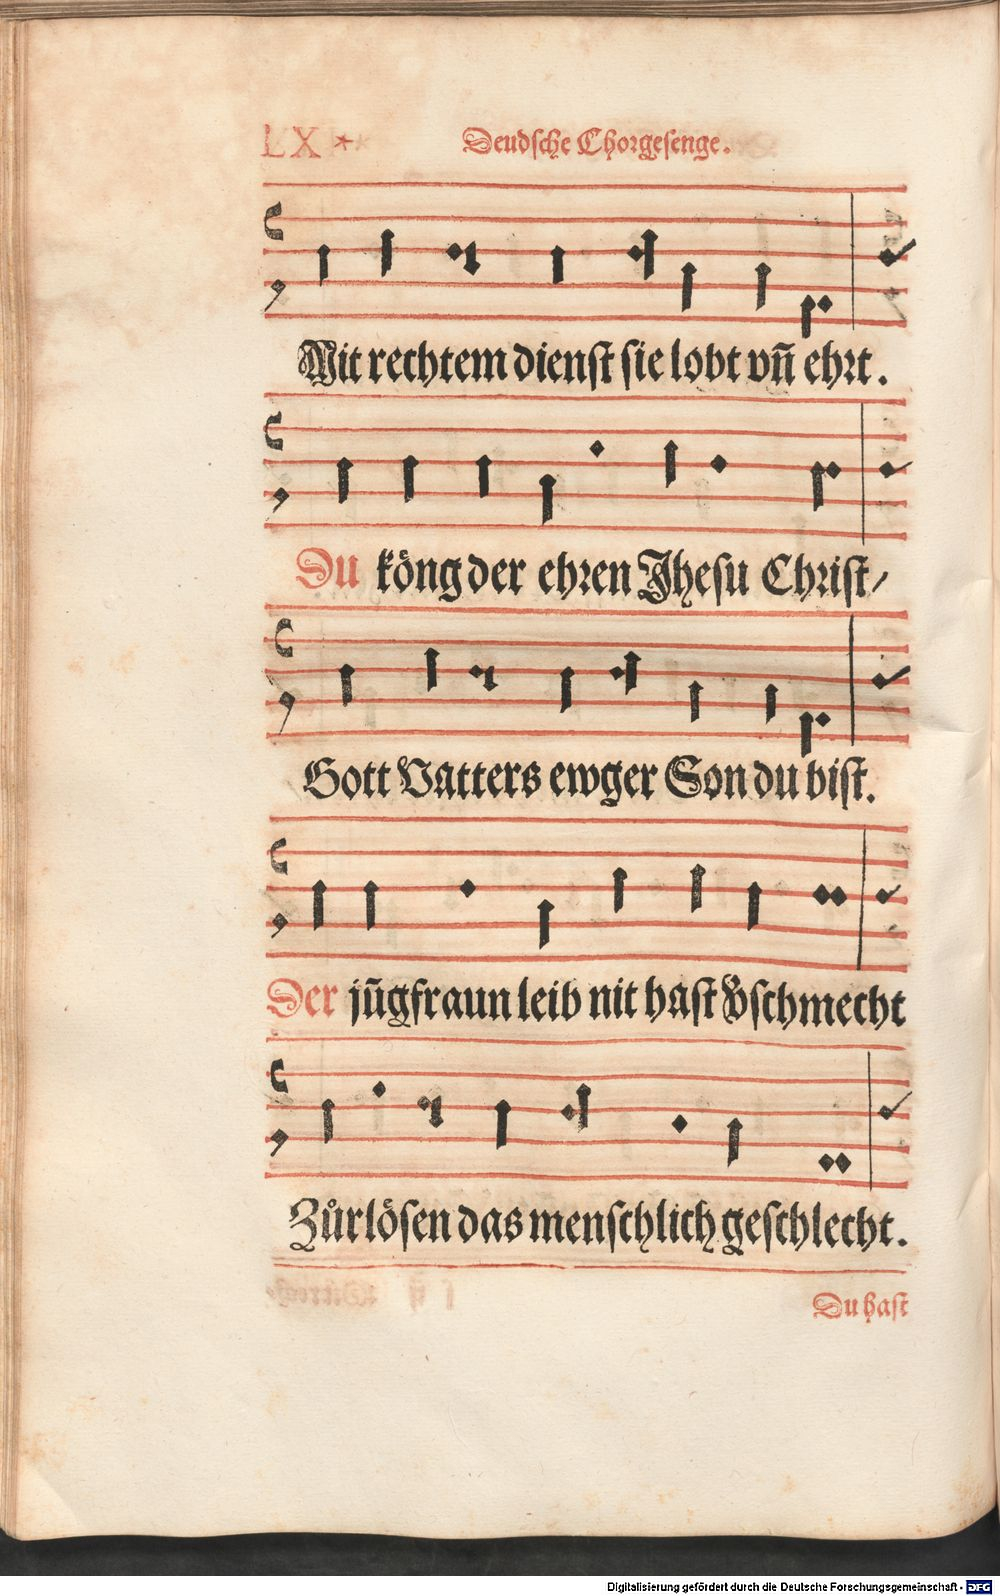 LX *
Deudsche Chorgesenge.
Mit rechtem dienst sie lobt vñ ehrt.
Du köng der ehren Jhesu Christ/
Gott Vatters ewger Son du bist.
Der jūgfraun leib nit hast v̈schmecht
Zůrlösen das menschlich geschlecht.
Du hast
Digitalisierung gefördert durch die Deutsche Forschungsgemeinschaft - DFG